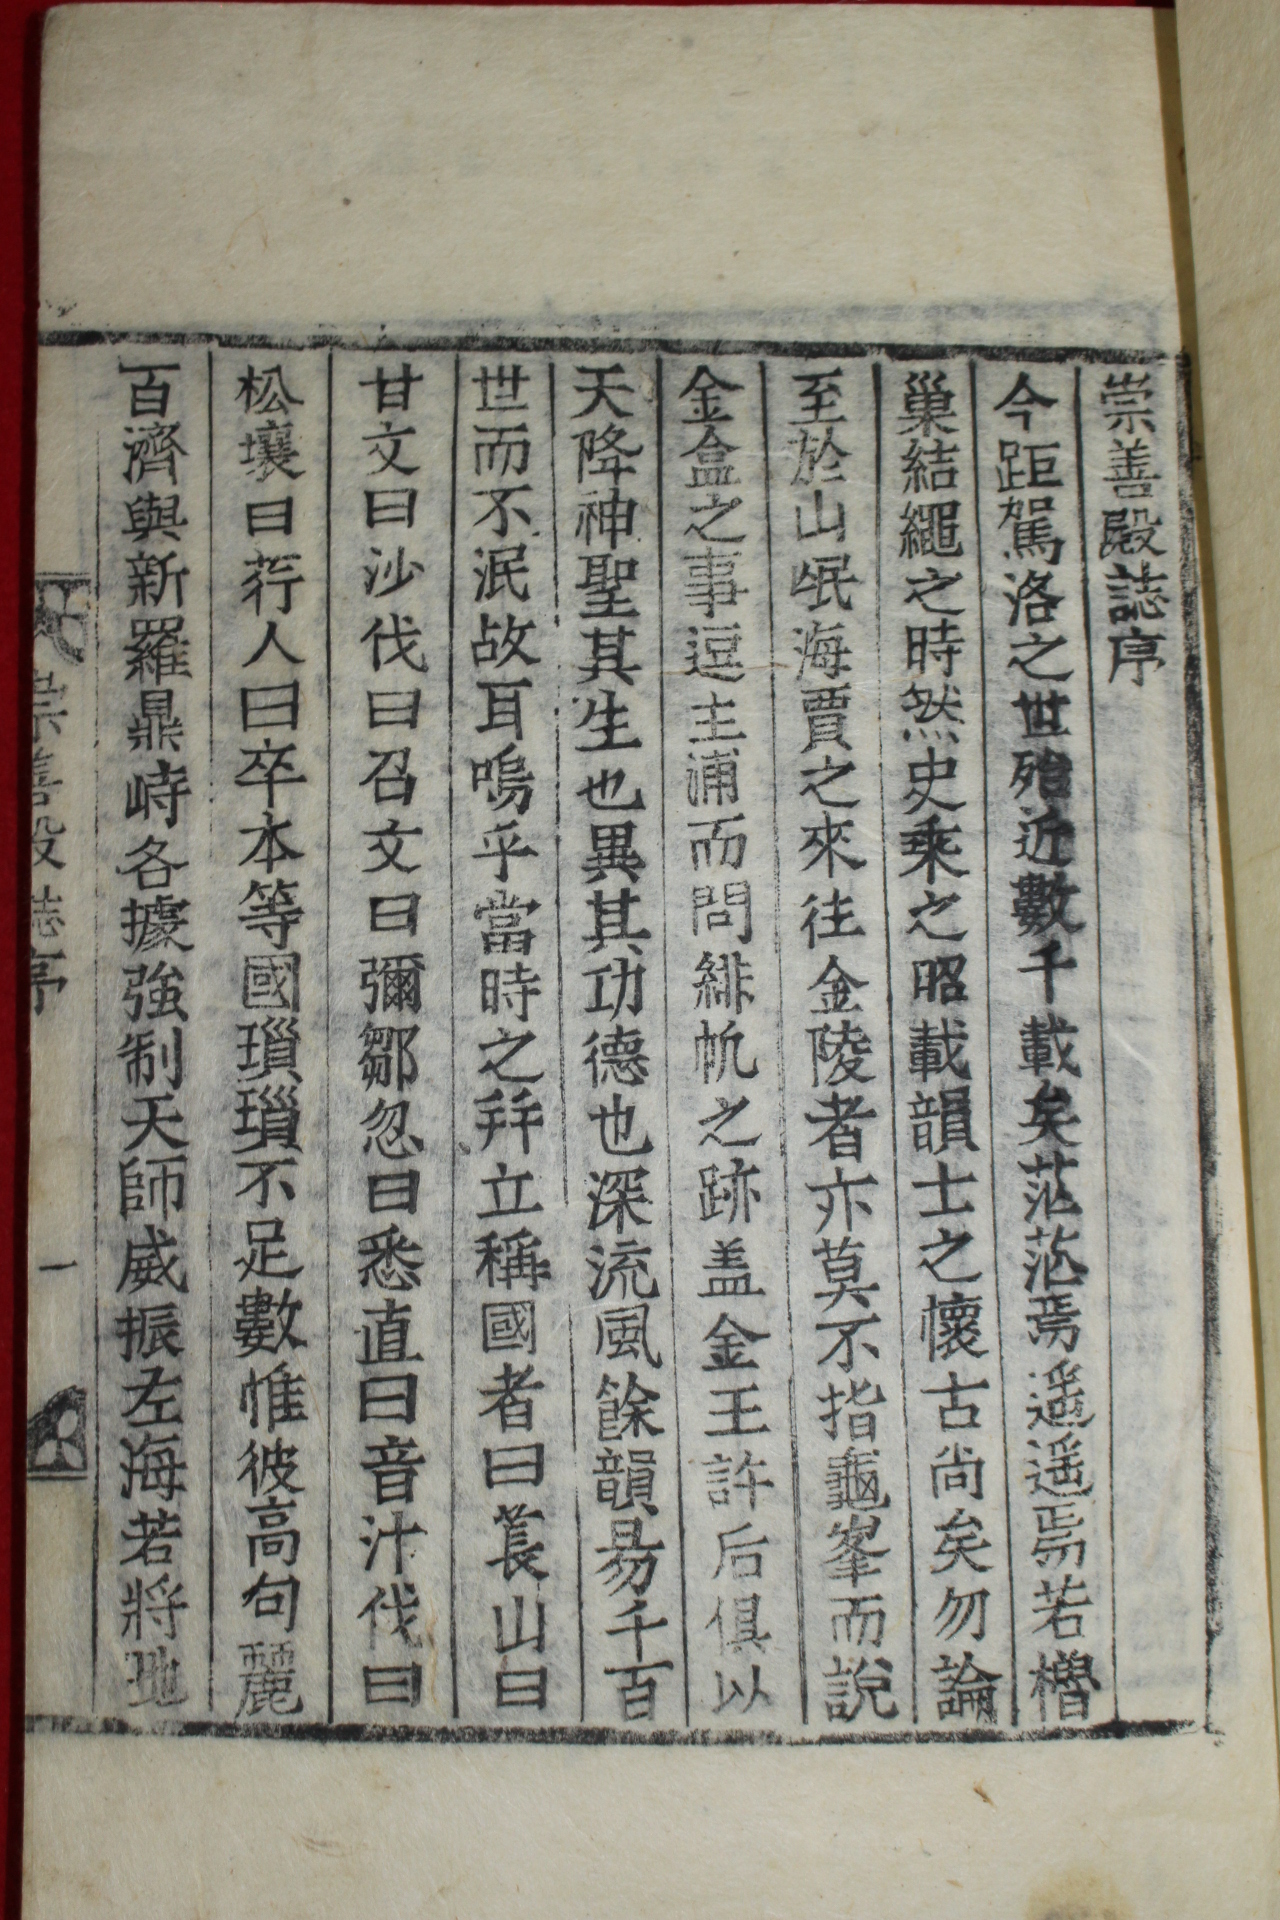 崇善殿誌序
今距駕洛之世殆近數千載矣茫茫焉遥遥焉若櫓
巢結繩之時然史乘之昭載韻士之懷古尚矣勿論
至於山氓海賈之來往金陵者亦莫不指龜峯而說
金盒之事逗主浦而問緋帆之跡盖金王許后俱以
天降神聖其生也異其功德也深流風餘韻曷千百
世而不泯故耳嗚乎當時之拜立稱國者曰萇山曰
甘文曰沙伐曰召文曰彌鄒忽曰悉直曰音汁伐曰
松壤曰荇人曰卒本等國瑣瑣不足數惟彼高句麗
百濟與新羅鼎峙各據強制天師威振左海若將地
崇善殿誌序
一